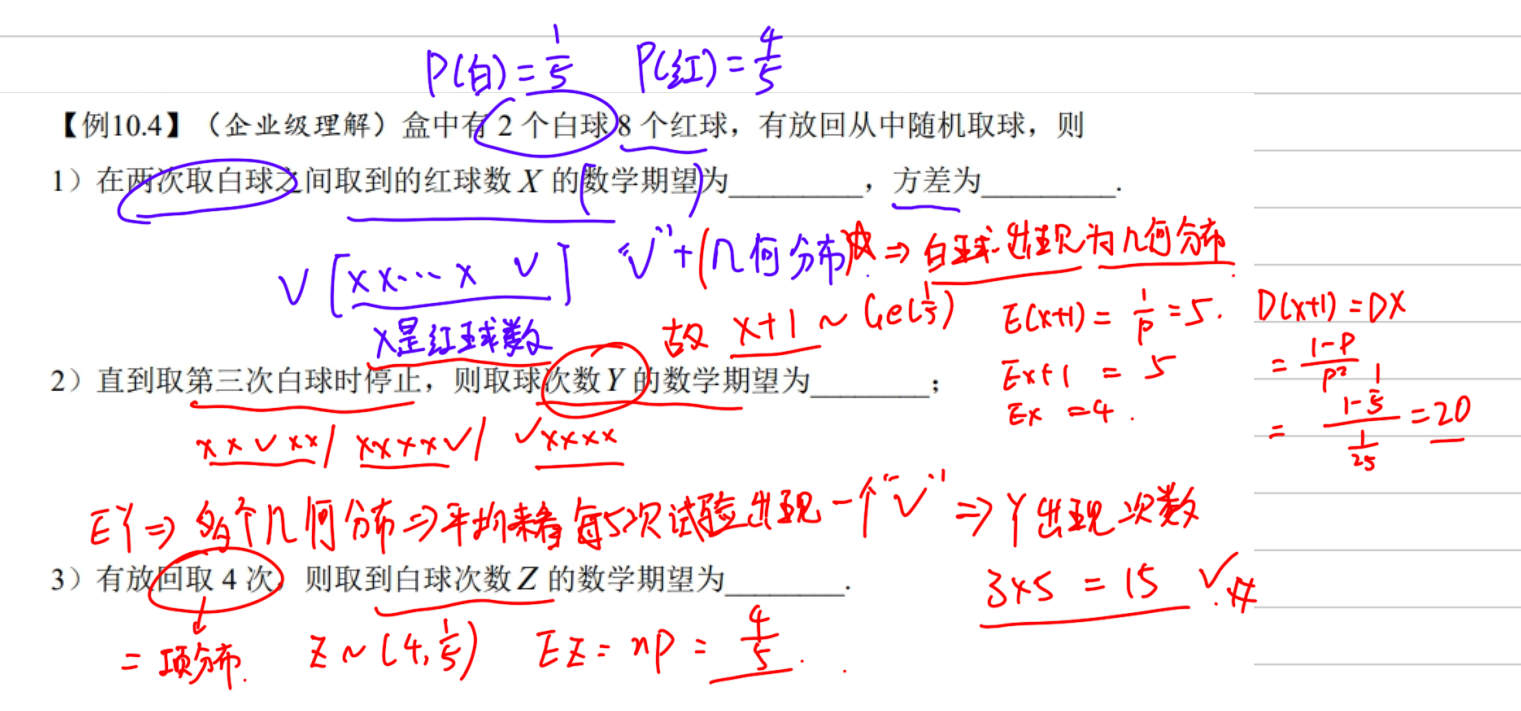 P(白)=1/5 P(红)=4/5
【例10.4】（企业级理解）盒中有 2 个白球 8 个红球，有放回从中随机取球，则
1）在两次取白球之间取到的红球数 X 的数学期望为________，方差为________.
"√"+(几何分布) ⇒ 白球出现为几何分布
√ [××⋯× √]
X是红球数
故 X+1 ~ Ge(1/5)
E(X+1) = 1/p = 5.
EX+1 = 5
EX = 4.
D(X+1) = DX
= (1-p)/p²
= (1-1/5)/(1/25) = 20
2）直到取第三次白球时停止，则取球次数 Y 的数学期望为________；
××√××| ××××√| √××××
EY ⇒ 多个几何分布 ⇒ 平均来看每5次试验出现一个"√" ⇒ Y出现次数
3×5 = 15 √.#
3）有放回取 4 次，则取到白球次数 Z 的数学期望为________.
二项分布.
Z ~ (4, 1/5) EZ = np = 4/5.